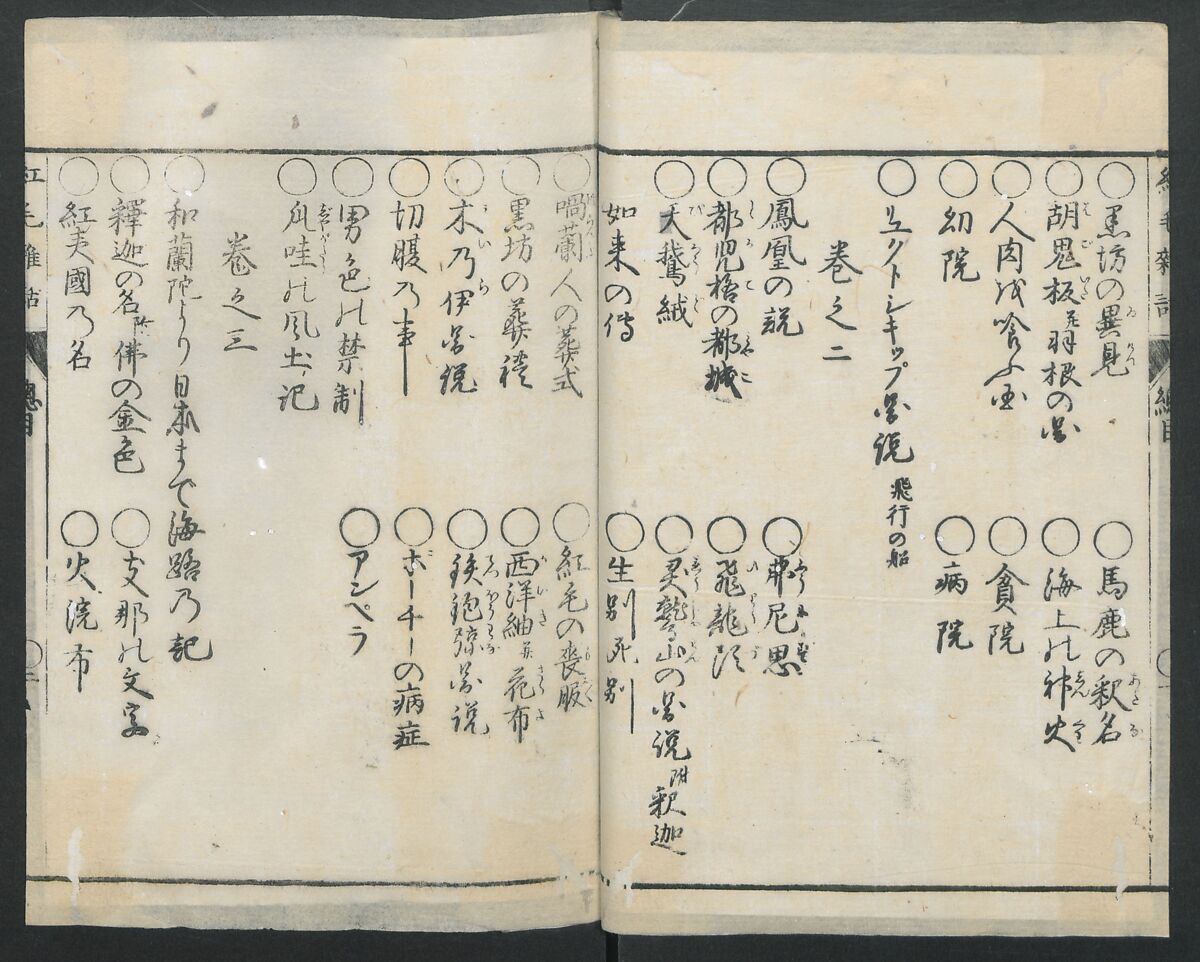 黒坊の異見
馬鹿の釈名
胡鬼板并羽根の図
海上の神火
人肉を喰ふ国
貧院
幼院
病院
リュクトシキップ図説 飛行の船
巻之二
鳳凰の説
弗尼思
都児格の都城
飛龍頭
天鵞絨
霊鷲山の図説 附釈迦
如来の傳
生別死別
喎蘭人の葬式
紅毛の喪服
黒坊の葬禮
西洋紬并花布
木乃伊図説
鉄砲弥図説
切腹乃事
ボーチーの病症
男色の禁制
アンペラ
爪哇の風土記
巻之三
和蘭陀より日本まで海路乃記
釋迦の名 佛の金色
支那の文字
紅夷國乃名
火浣布
紅毛雑話
總目